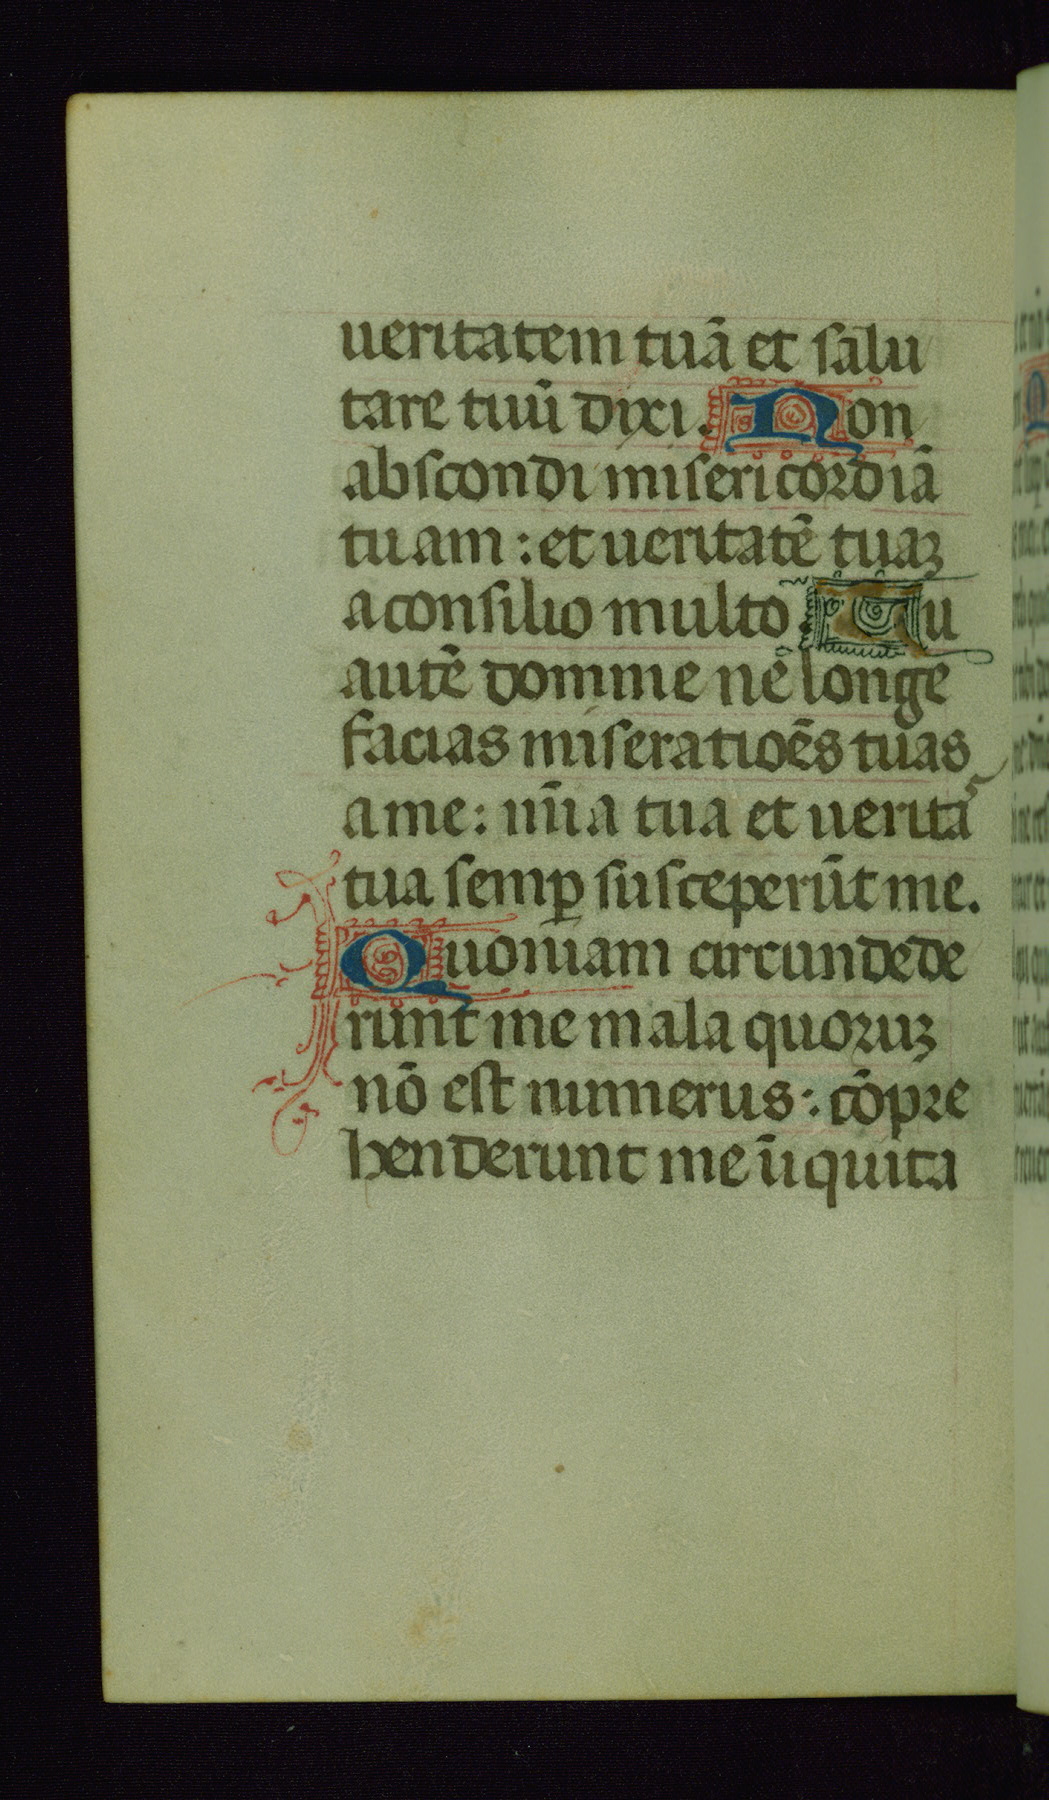 ueritatem tuā et salu
tare tuū dixi. Non
abscondi misericordiā
tuam: et ueritatē tuaꝫ
a consilio multo. Tu
autē domine ne longe
facias miseratiōēs tuas
a me: mīa tua et ueritaˢ
tua semꝑ susceperūt me.
Quoniam circundede
runt me mala quoruꝫ
nō est numerus: cōpre
henderunt me īiquita